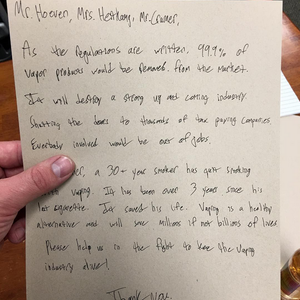 Mr. Hoeven, Mrs. Heitkamp, Mr. Cramer,
As the regulations are written, 99.9% of
vapor products would be removed from the market.
It will destroy a strong up and coming industry
shutting the doors to thousands of tax paying companies.
Everybody involved would be out of jobs.
a 30+ year smoker has quit smoking
vaping. It has been over 3 years since his
last cigarette. It saved his life. Vaping is a healthy
alternative and will save millions if not billions of lives.
Please help us in the fight to keep the vaping
industry alive!
Thank you,